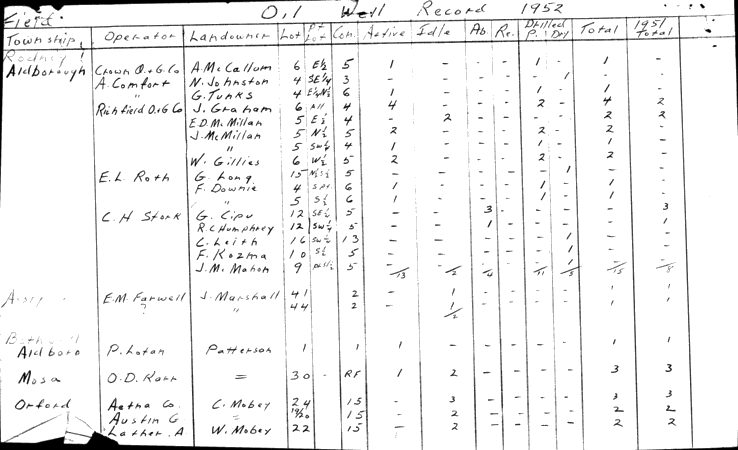 Oil Well Record 1952
Field:
Township, Operator Landowner Lot Pt Lot Con. Active Idle Ab. Re. Drilled P. Dry Total 1951 Total
Rodney
Aldborough Crown O.+G.Co A. McCallum 6 E½ 5 1 - - - 1 - 1 -
A. Comfort N. Johnston 4 SE¼ 3 - - - - - 1 - -
" G. Tunks 4 E½N½ 6 1 - - - 1 - 1 -
Richfield O.+G Co J. Graham 6 All 4 4 - - - 2 - 4 2
E.D. McMillan 5 E½ 4 - 2 - - - - 2 2
J. McMillan 5 N½ 5 2 - - - 2 - 2 -
" 5 SW¼ 4 1 - - - 1 - 1 -
W. Gillies 6 W½ 5 2 - - - 2 - 2 -
E.L. Roth G. Long 15 N½S½ 5 - - - - - 1 - -
F. Downie 4 S pt. 6 1 - - - 1 - 1 -
" 5 S½ 6 1 - - - 1 - 1 -
C. H Stork G. Cipu 12 SE½ 5 - - 3 - - - - 3
R.C Humphrey 12 SW¼ 5 - - 1 - - - - 1
C. Leith 16 SW½ 13 - - - - - 1 - -
F. Kozma 10 S½ 5 - - - - - 1 - -
J. M. Mahon 9 5 - - - - - 1 - -
13 2 4 11 5 15 8
E.M. Farwell J. Marshall 41 2 - 1 - - - - 1 1
" 44 2 - 1 - - - - 1 1
2
Aldboro P. Lotan Patterson 1 1 1 - - - - - 1 1
Mosa O.D. Karr = 30 - RF 1 2 - - - - 3 3
Orford Aetna Co. C. Mobey 24 15 - 3 - - - - 3 3
Austin G = 20 15 - 2 - - - - 2 2
Lather. A W. Mobey 22 15 - 2 - - - - 2 2